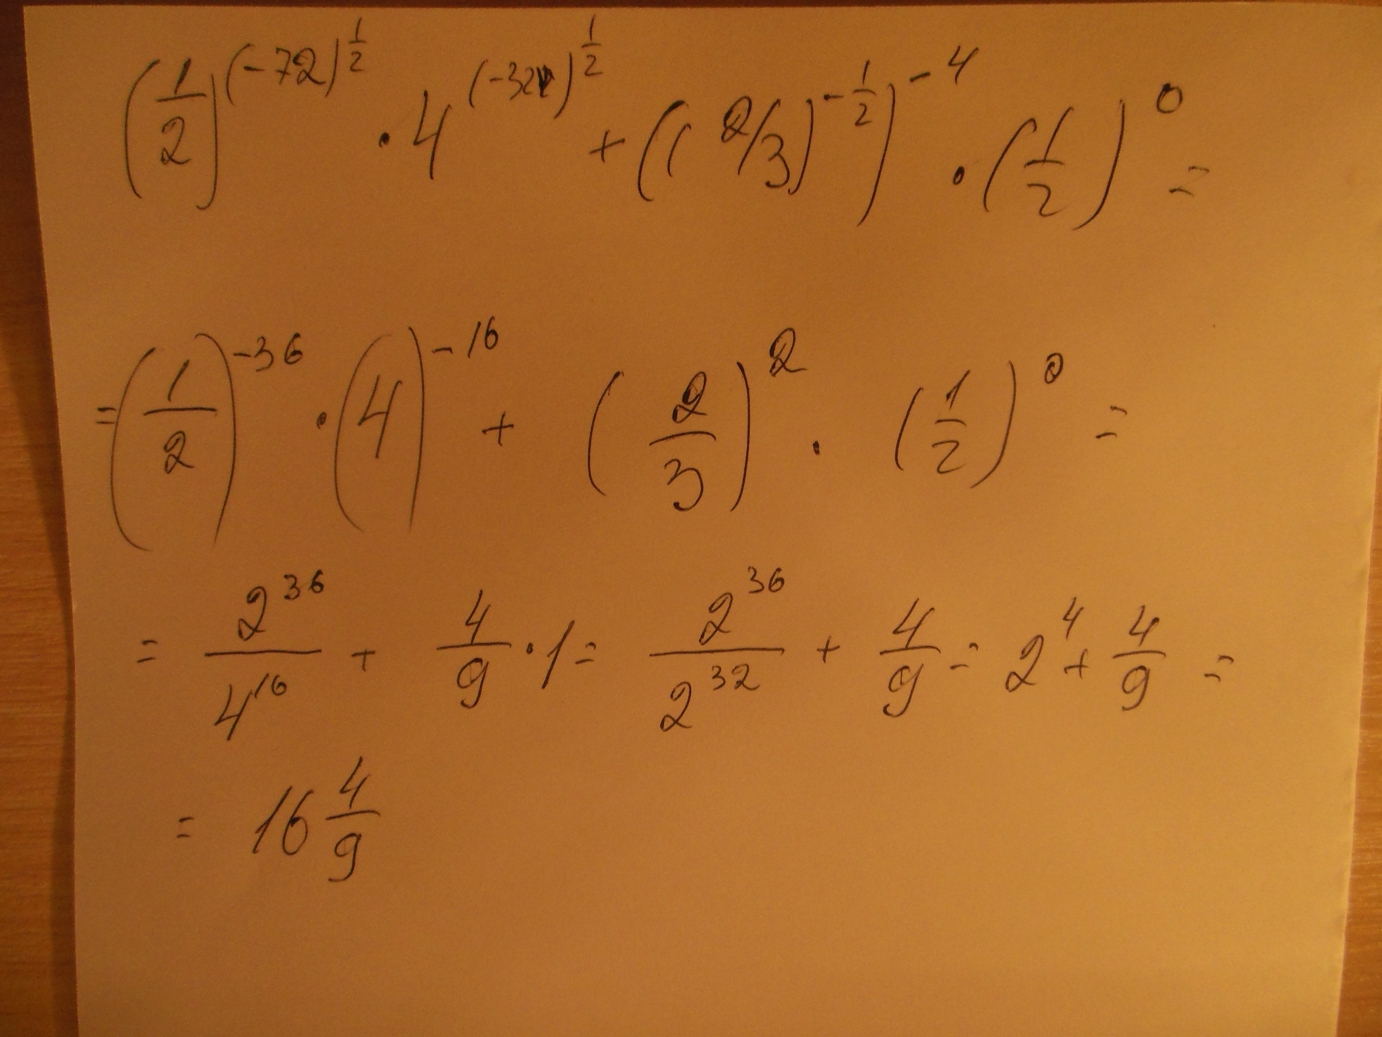 (1/2)^(-72)^1/2 · 4^(-32)^1/2 + ((2/3)^-1/2)^-4 · (1/2)^0 =
= (1/2)^-36 · (4)^-16 + (2/3)^2 · (1/2)^0 =
= 2^36/4^16 + 4/9 · 1 = 2^36/2^32 + 4/9 = 2^4 + 4/9 =
= 16 4/9